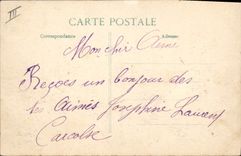 III
CARTE POSTALE
Correspondance
Adresse
Mon cher
Reçois un bonjour des
Aimés Josephine Laurent